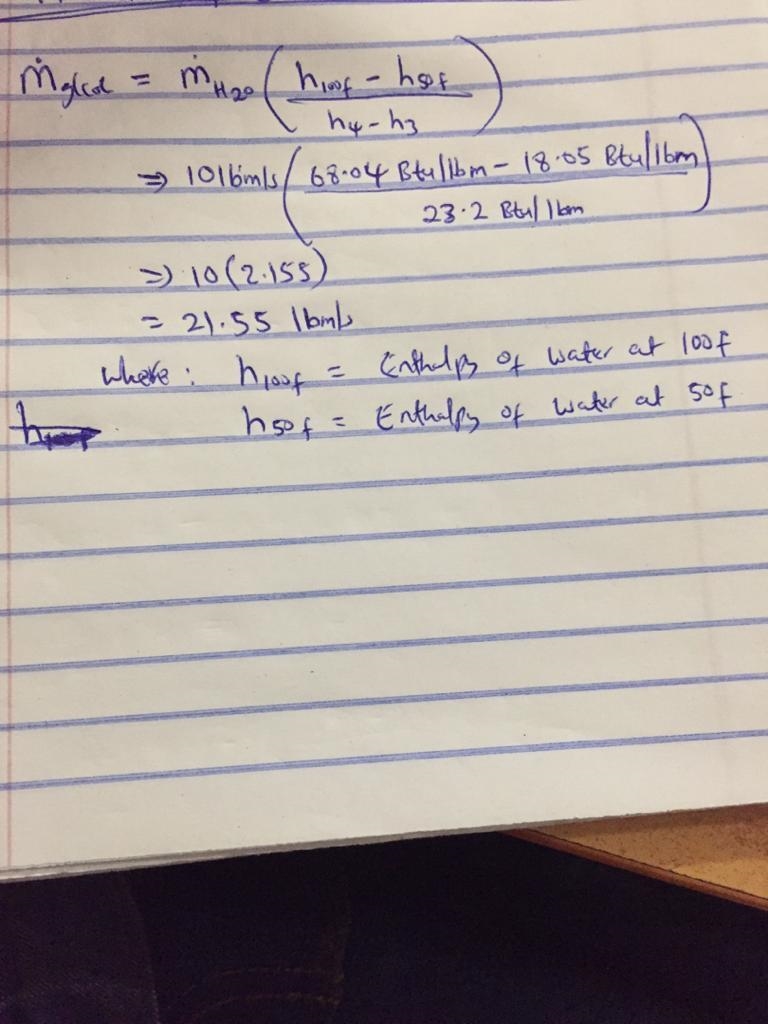 ṁglcol = ṁH20 (h100f - h50f / h4 - h3)
⇒ 10lbm/s (68.04 Btu/lbm - 18.05 Btu/lbm / 23.2 Btu/lbm)
⇒ 10(2.155)
= 21.55 lbm/s
where : h100f = Enthalpy of water at 100f
h50f = Enthalpy of water at 50f